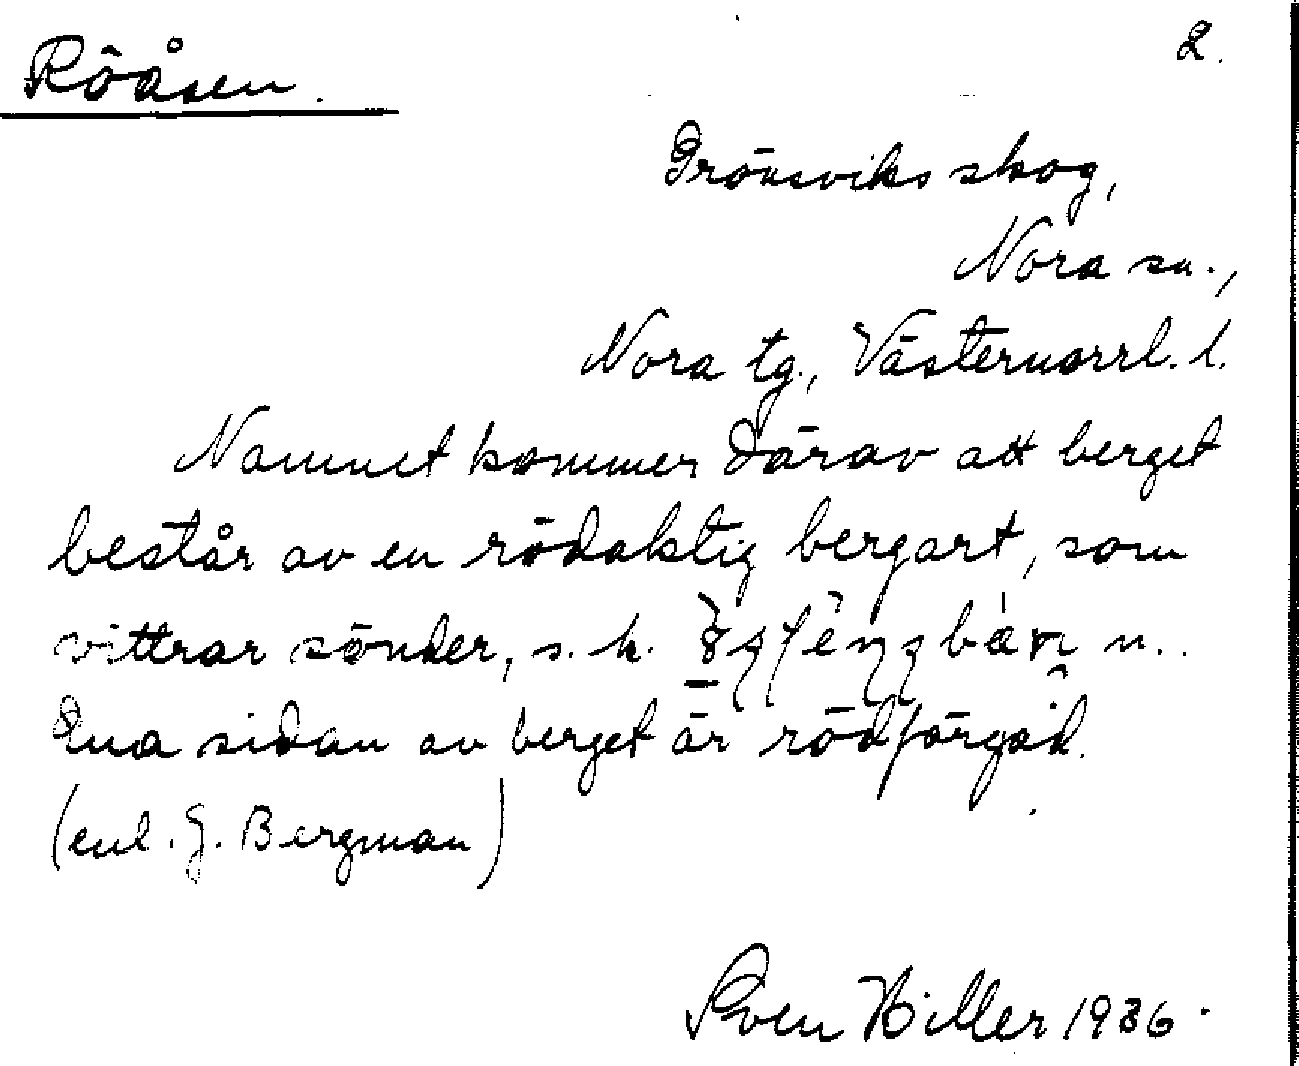 Röåsen.
2.
Grönsviks skog,
Nora sn.,
Nora tg., Västernorrl. l.
Namnet kommer därav att berget
består av en rödaktig bergart, som
vittrar sönder, s. k. n..
Ena sidan av berget är rödfärgad.
(enl. G. Bergman)
Sven Hiller 1936.